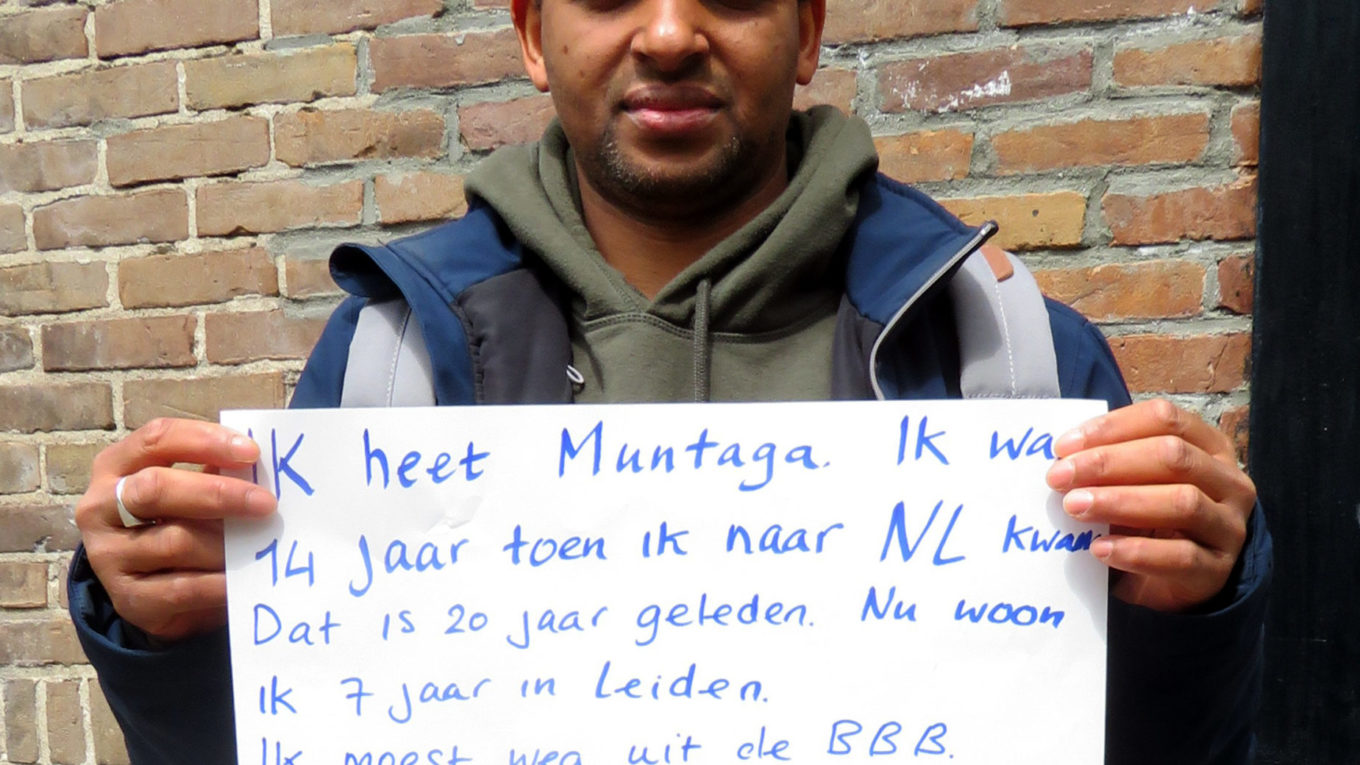 Ik heet Muntaga. Ik wa
14 jaar toen ik naar NL kwam
Dat is 20 jaar geleden. Nu woon
ik 7 jaar in Leiden.
Ik moest weg uit de BBB.